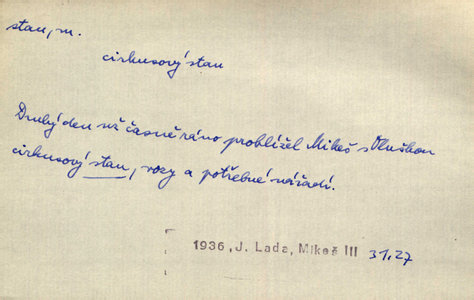 stan, m.
cirkusový stan
Druhý den už časně ráno prohlížel Mikeš s Oluškou
cirkusový stan, vozy a potřebné nářadí.
1936, J. Lada, Mikeš III 31.27